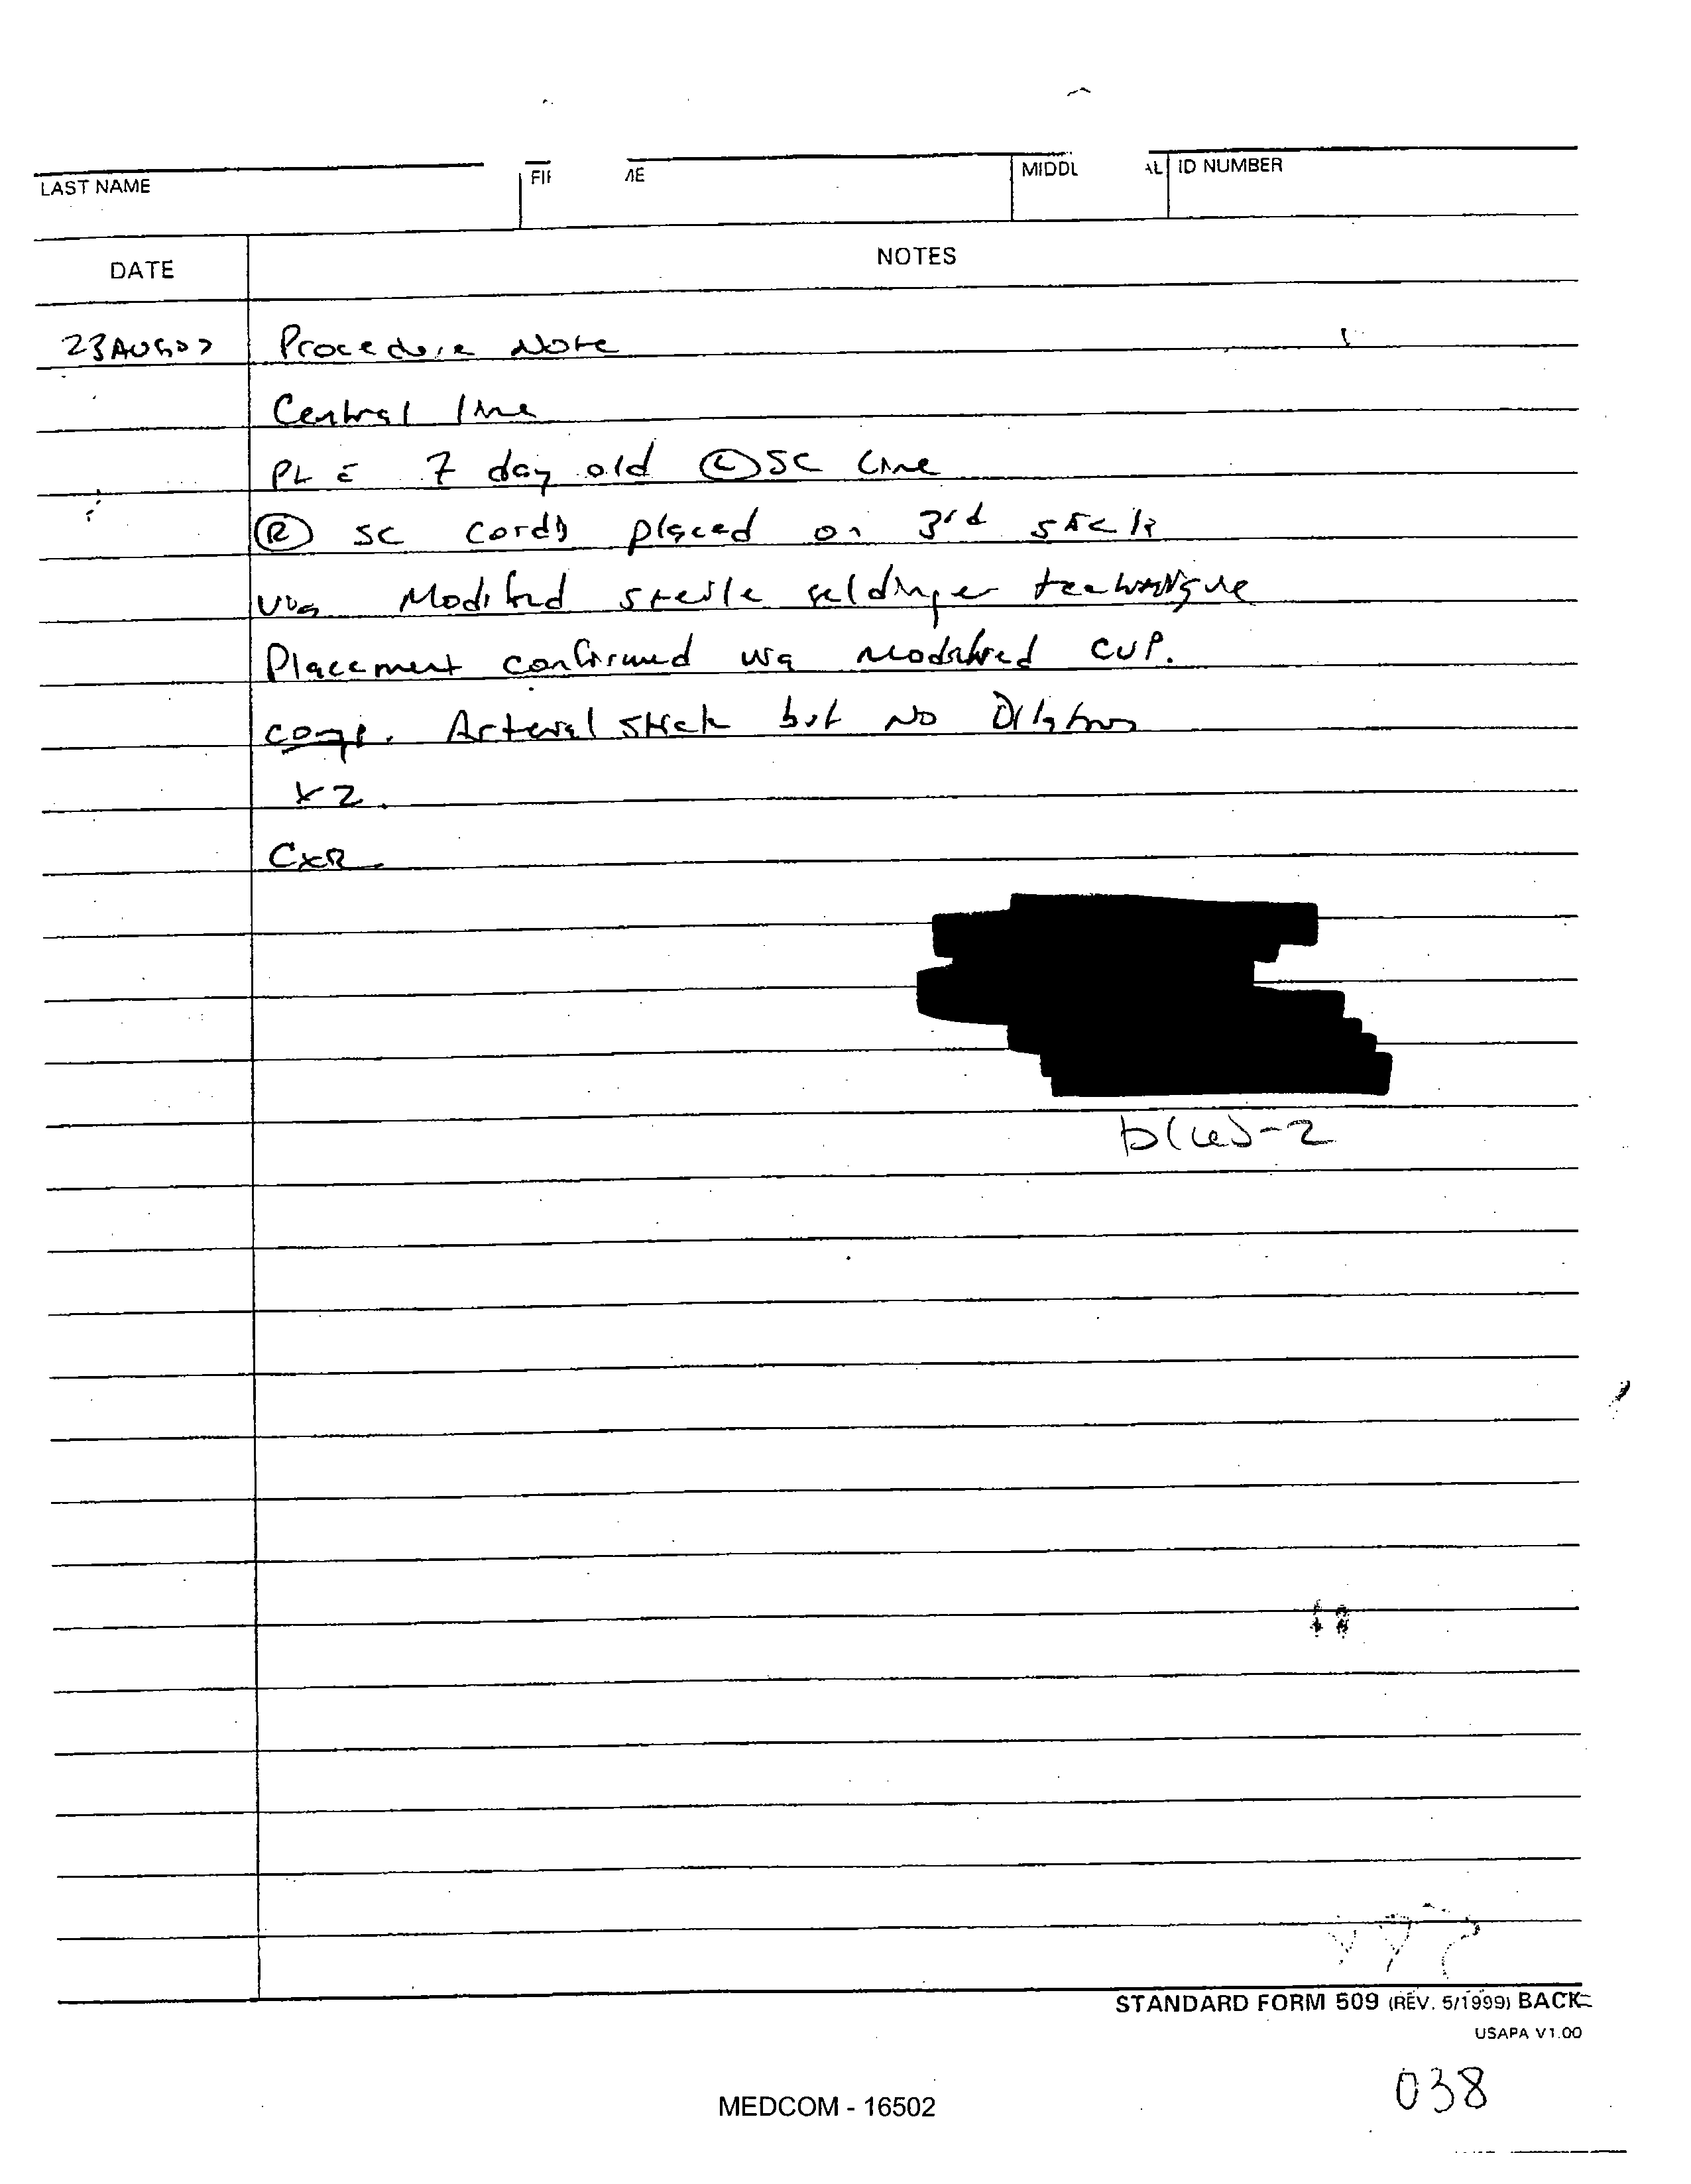 LAST NAME FI ME MIDDL AL ID NUMBER
DATE NOTES
23AUG03 Procedure Note
Central line
Pt c̄ 7 day old Ⓛ SC line
Ⓡ SC cordis placed on 3rd stick
via Modified sterile seldinger technique
Placement confirmed via modified CVP.
comp. Arterial stick but no Dilation
x2.
CXR
b(6)-2
STANDARD FORM 509 (REV. 5/1999) BACK
USAPA V1.00
038
MEDCOM - 16502